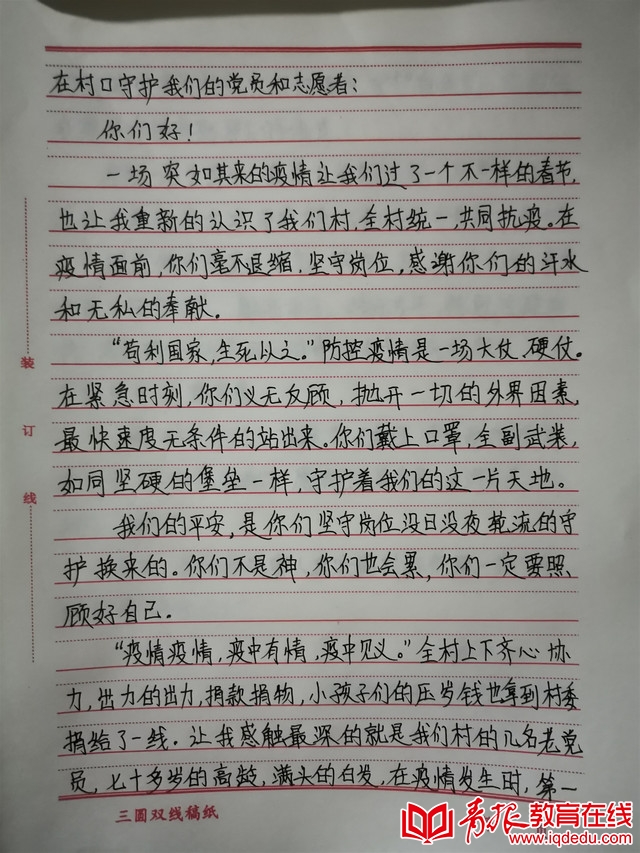 在村口守护我们的党员和志愿者：
你们好！
一场突如其来的疫情让我们过了一个不一样的春节，
也让我重新的认识了我们村，全村统一，共同抗疫。在
疫情面前，你们毫不退缩，坚守岗位，感谢你们的汗水
和无私的奉献。
“苟利国家，生死以之。”防控疫情是一场大仗、硬仗。
在紧急时刻，你们义无反顾，抛开一切的外界因素，
最快速度无条件的站出来。你们戴上口罩，全副武装，
如同坚硬的堡垒一样，守护着我们的这一片天地。
我们的平安，是你们坚守岗位没日没夜轮流的守
护换来的。你们不是神，你们也会累，你们一定要照
顾好自己。
“疫情疫情，疫中有情，疫中见义。”全村上下齐心协
力，出力的出力，捐款捐物，小孩子们的压岁钱也拿到村委
捐给了一线。让我感触最深的就是我们村的几名老党
员，七十多岁的高龄，满头的白发，在疫情发生时，第一
装
订
线
三圆双线稿纸
青报教育在线
www.iqdedu.com